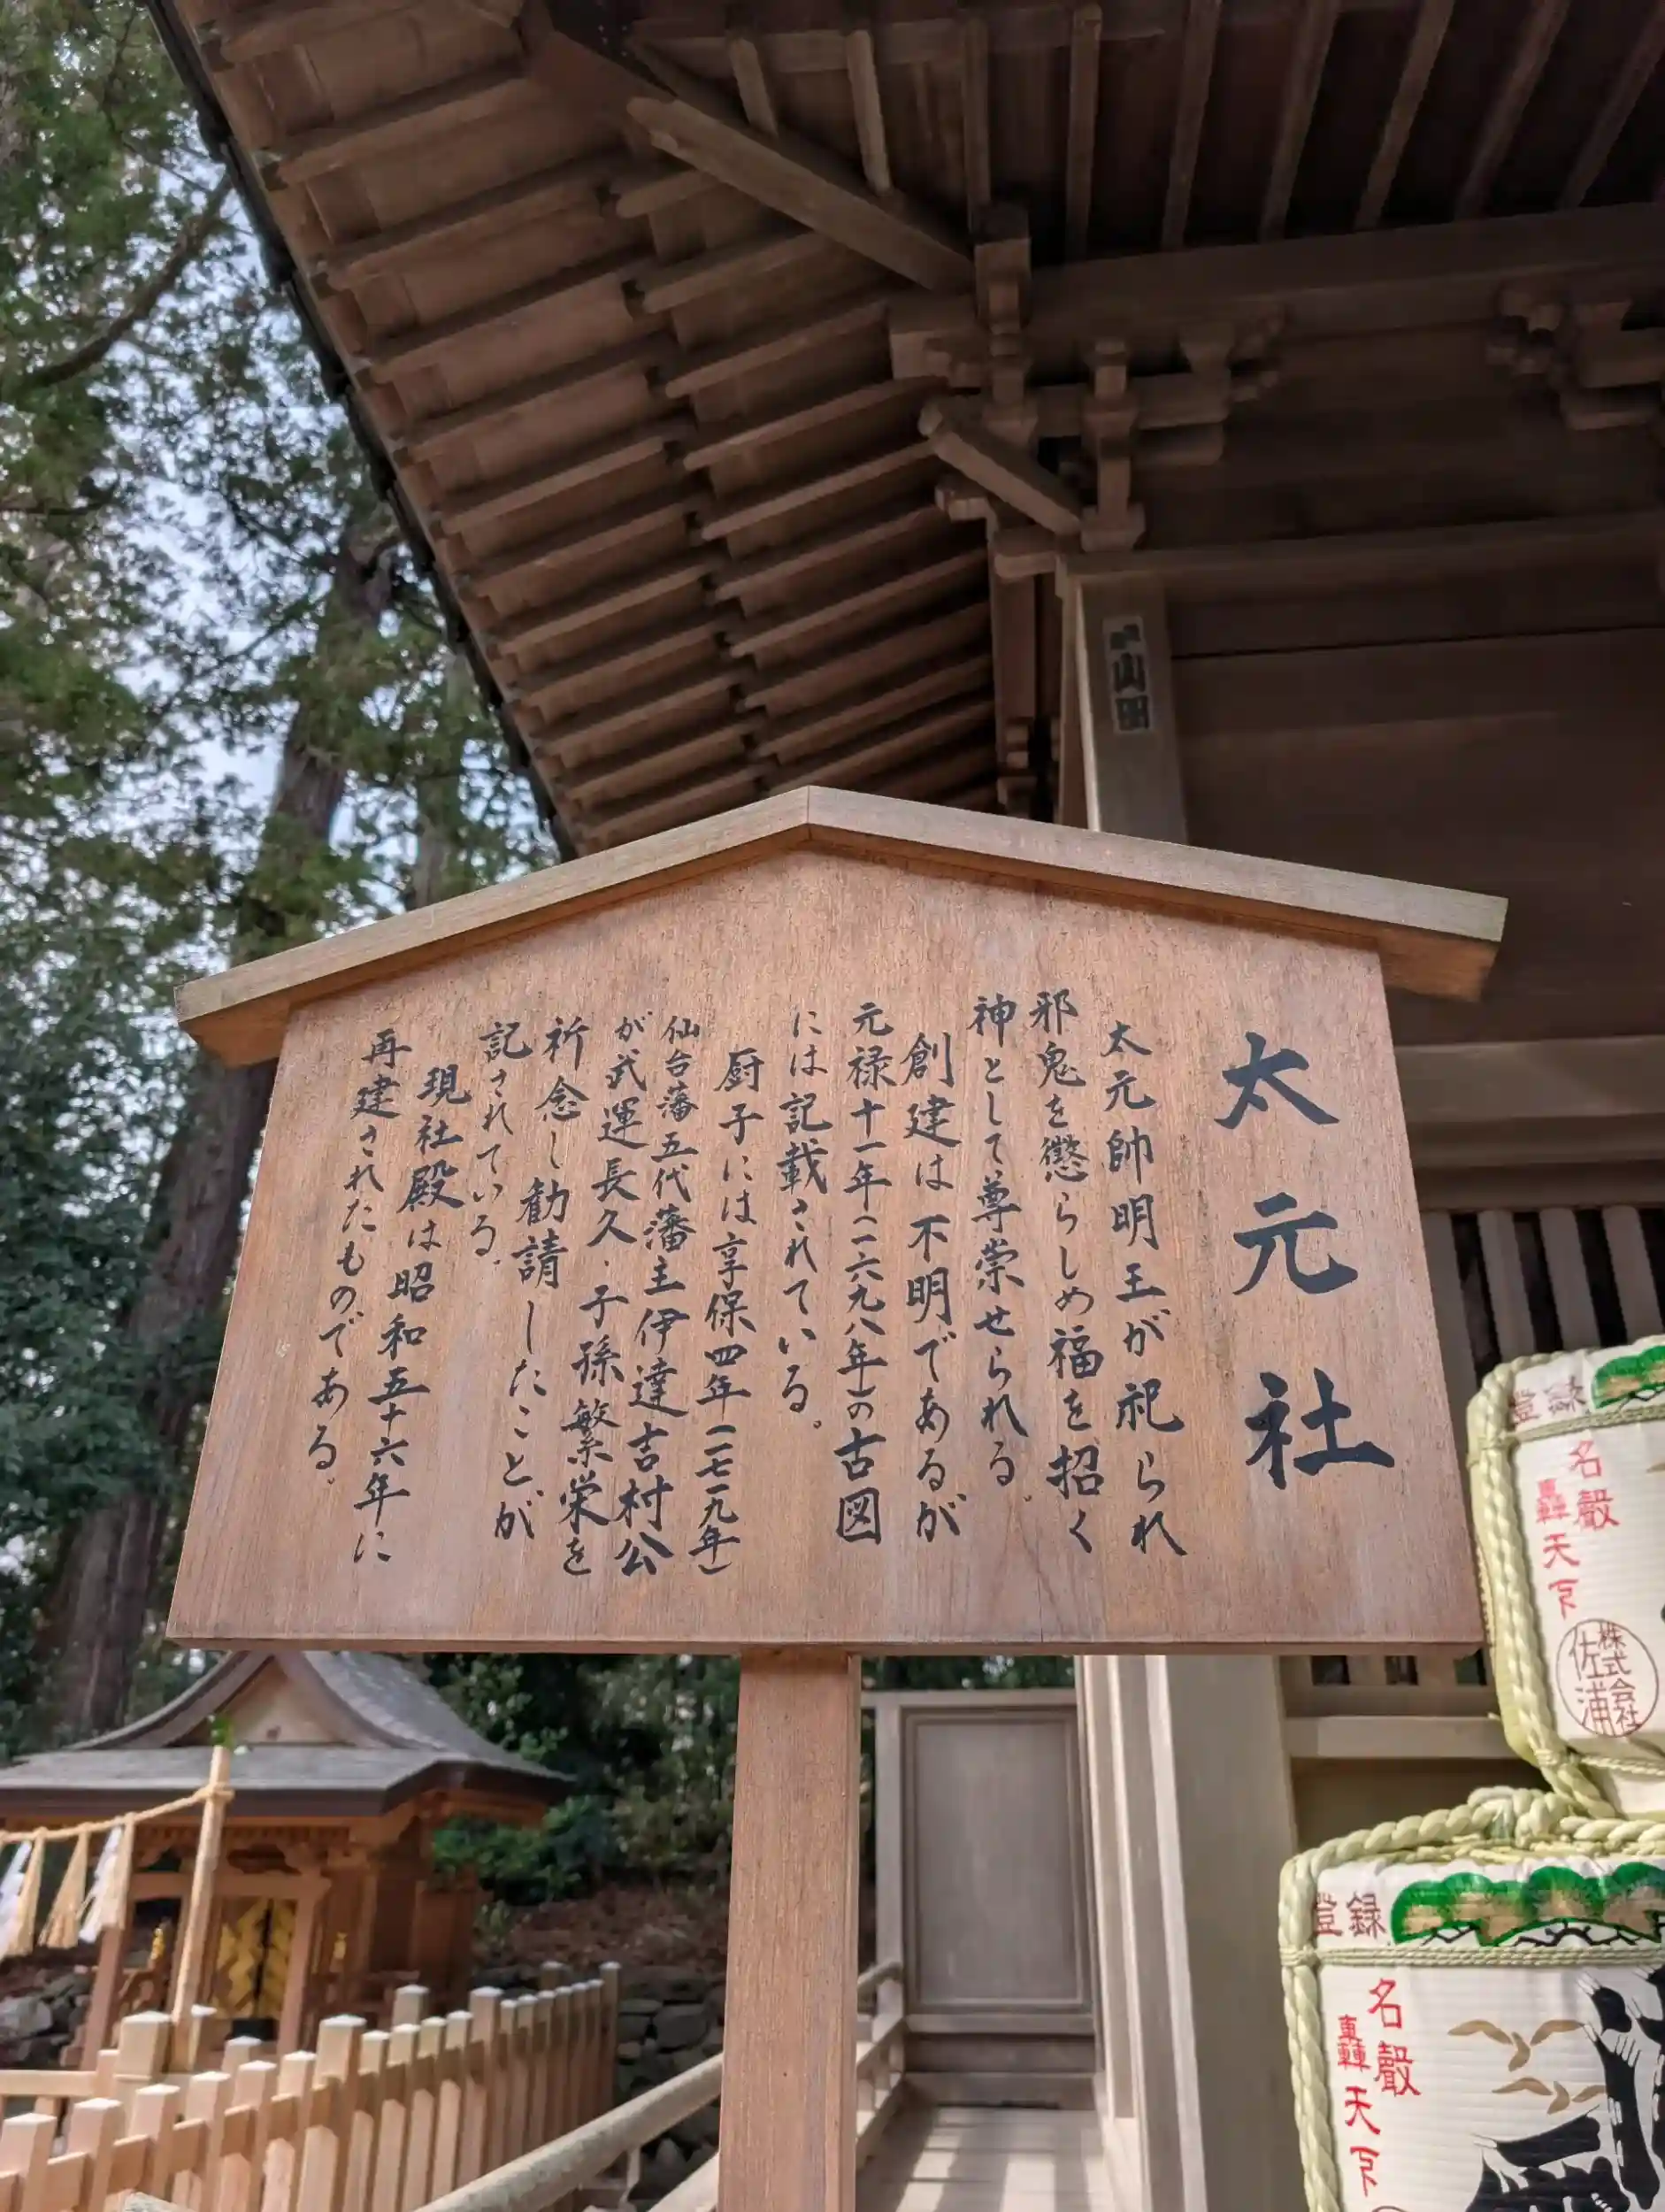 太元社
太元帥明王が祀られ
邪鬼を懲らしめ福を招く
神として尊崇せられる。
創建は不明であるが
元禄十一年(一六九八年)の古図
には記載されている。
厨子には享保四年(一七一九年)
仙台藩五代藩主伊達吉村公
が武運長久・子孫繁栄を
祈念し勧請したことが
記されている。
現社殿は昭和五十六年に
再建されたものである。
山田
登録
名聲
轟天下
株式会社
佐浦
登録
名聲
轟天下